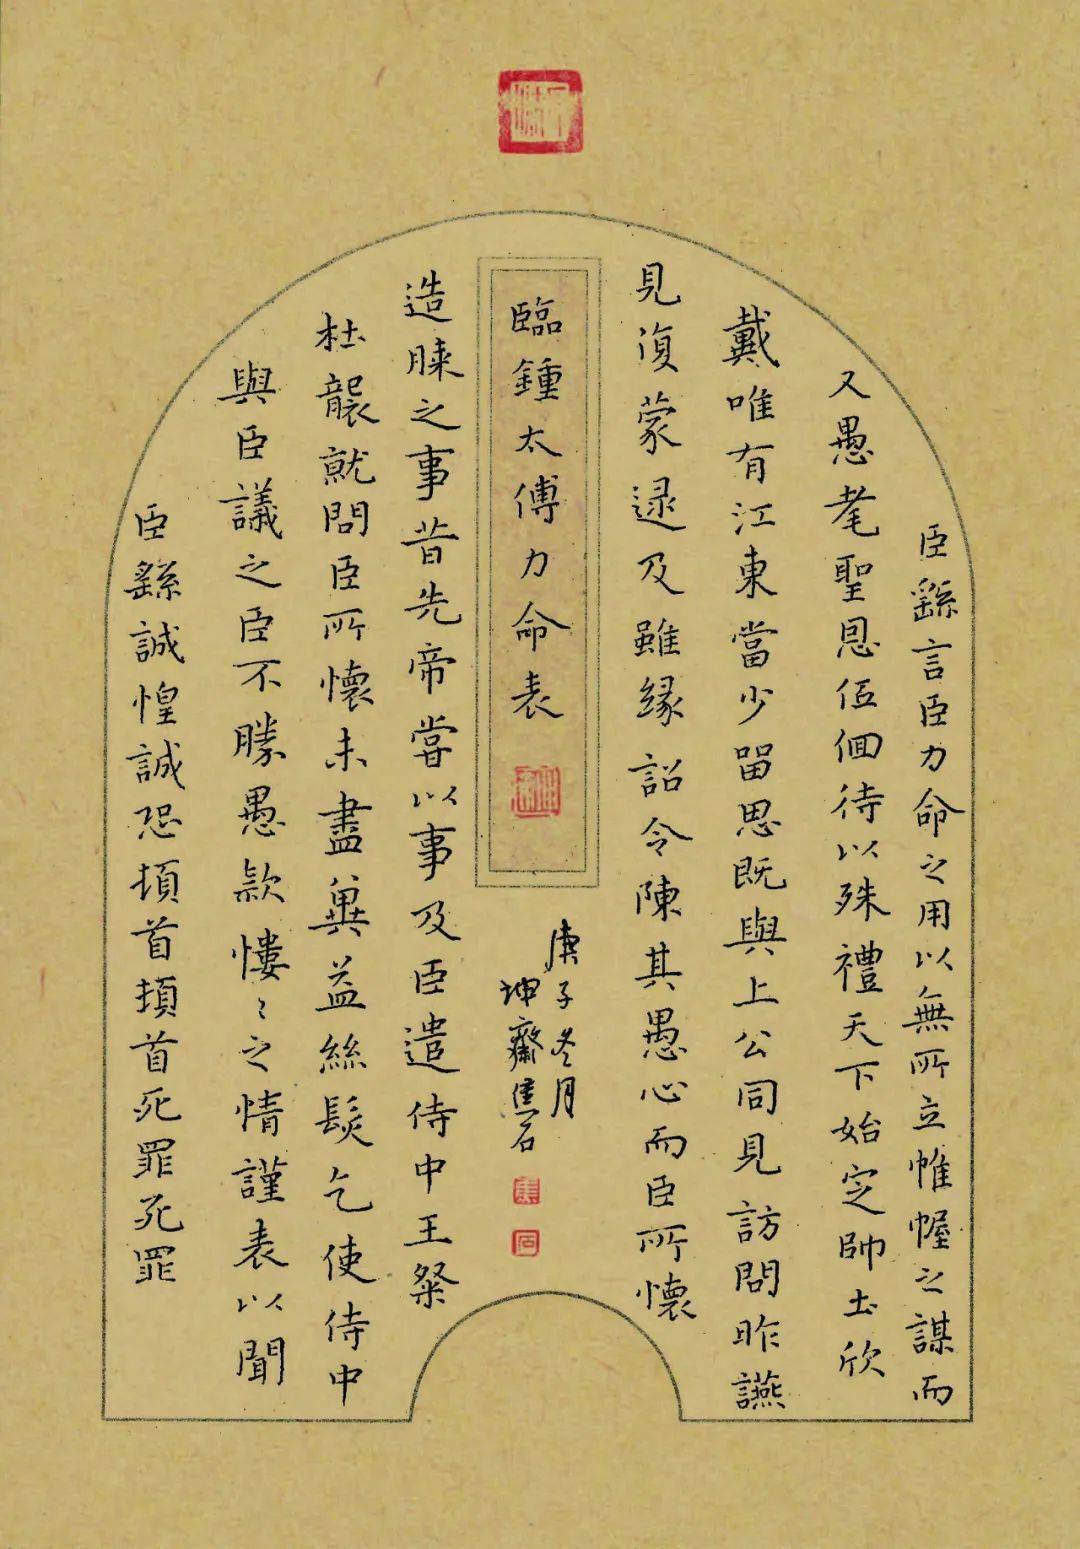 臣繇言臣力命之用以無所立帷幄之謀而
又愚耄聖恩伍佪待以殊禮天下始定帥土欣
戴唯有江東當少留思既與上公同見訪問昨讌
見復蒙逯及雖緣詔令陳其愚心而臣所懷
臨鍾太傅力命表
庚子冬月
坤齋焦石
焦
石
造膝之事昔先帝嘗以事及臣遣侍中王粲
杜襲就問臣所懷未盡冀益絲髮乞使侍中
與臣議之臣不勝愚款慺〻之情謹表以聞
臣繇誠惶誠恐頓首頓首死罪死罪